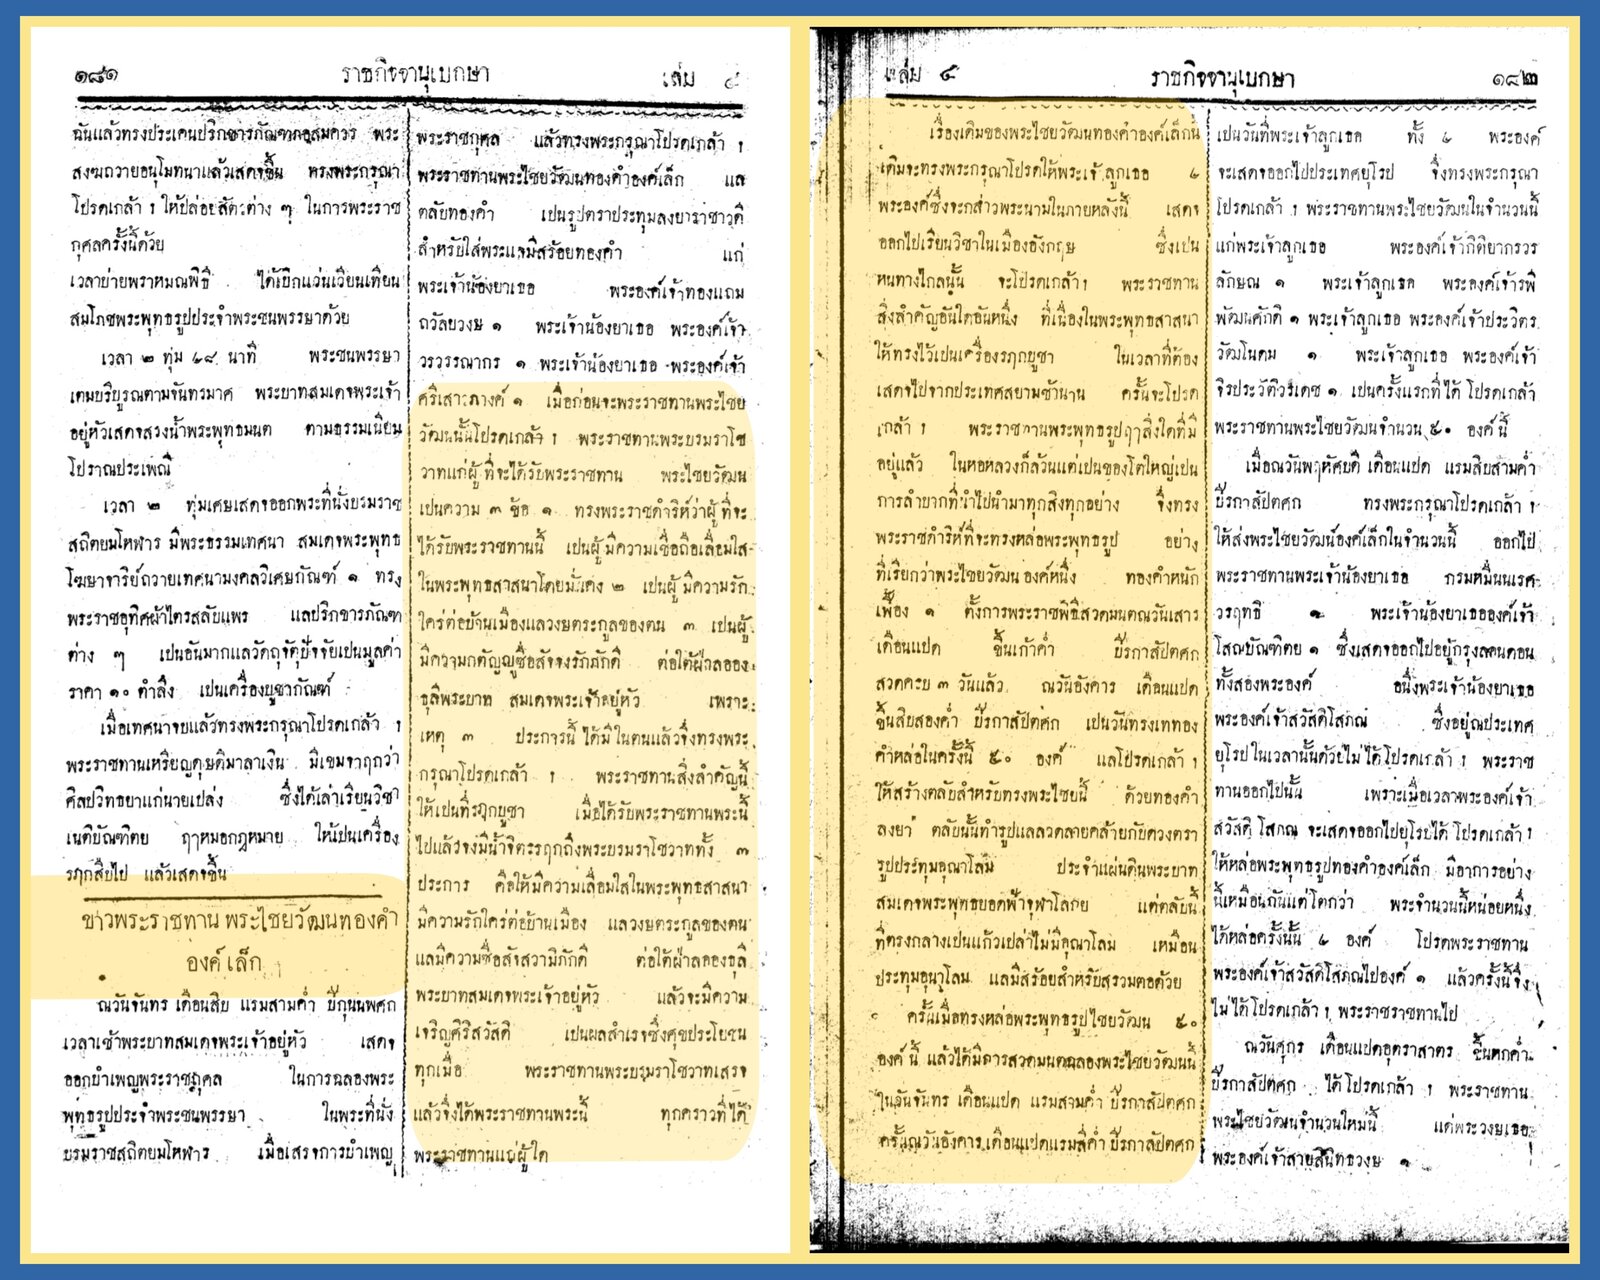 ๑๘๑ ราชกิจจานุเบกษา เล่ม ๔
ฉันแล้วทรงประเคนปริกขารภัณฑกอสมควร พระ
สงฆถวายอนุโมทนาแล้วเสดจขึ้น ทรงพระกรุณา
โปรดเกล้า ฯ ให้ปล่อยสัตะต่าง ๆ ในการพระราช
กุศลครั้งนี้ด้วย
เวลาบ่ายพราหมณพิธี ได้เบิกแว่นเวียนเทียน
สมโภชพระพุทธรูปประจำพระชนพรรษาด้วย
เวลา ๒ ทุ่ม ๔๘ นาที พระชนพรรษา
เตมบริบูรณตามจันทรมาศ พระบาทสมเดจพระเจ้า
อยู่หัวเสดจสรงน้ำพระพุทธมนต ตามธรรมเนียม
โบราณประเพณี
เวลา ๒ ทุ่มเศษเสดจออกพระที่นั่งบรมราช
สถิตยมโหฬาร มีพระธรรมเทศนา สมเดจพระพุทธ
โฆษาจาริย์ถวายเทศนามงคลวิเศษกัณฑ์ ๑ ทรง
พระราชอุทิศผ้าไตรสลับแพร แลปริกขารภัณฑ
ต่าง ๆ เป็นอันมากแลวัตถุจัตุปัจจัยเปนมูลค่า
ราคา ๑๐ ตำลึง เปนเครื่องบูชากัณฑ์
เมื่อเทศนาจบแล้วทรงพระกรุณาโปรดเกล้า ฯ
พระราชทานเหรียญดุษดิมาลาเงิน มีเขมจาฤกว่า
ศิลปวิทยาแก่นายเปล่ง ซึ่งได้เล่าเรียนวิชา
เนติบัณฑิตย ฤๅหมอกฎหมาย ให้เปนเครื่อง
รฦกสืบไป แล้วเสดจขึ้น
ข่าวพระราชทาน พระไชยวัฒนทองคำ
องค์ เล็ก
ณวันจันทร เดือนสิบ แรมสามค่ำ ปีกุนนพศก
เวลาเช้าพระบาทสมเดจพระเจ้าอยู่หัว เสดจ
ออกบำเพญพระราชกุศล ในการฉลองพระ
พุทธรูปประจำพระชนพรรษา ในพระที่นั่ง
บรมราชสถิตยมโหฬาร เมื่อเสรจการบำเพญ
พระราชกุศล แล้วทรงพระกรุณาโปรดเกล้า ฯ
พระราชทานพระไชยวัฒนทองคำองค์เล็ก แล
ตลับทองคำ เปนรูปตราประทุมลงยาราชาวดี
สำหรับใส่พระแลมีสร้อยทองคำ แก่
พระเจ้าน้องยาเธอ พระองค์เจ้าทองแถม
ถวัลยวงษ ๑ พระเจ้าน้องยาเธอ พระองค์เจ้า
วรวรรณากร ๑ พระเจ้าน้องยาเธอ พระองค์เจ้า
ศรีเสาวภางค์ ๑ เมื่อก่อนจะพระราชทานพระไชย
วัฒนนั้นโปรดเกล้า ฯ พระราชทานพระบรมราโช
วาทแก่ผู้ที่จะได้รับพระราชทาน พระไชยวัฒน
เปนความ ๓ ข้อ ๑ ทรงพระราชดำริห์ว่าผู้ที่จะ
ได้รับพระราชทานนี้ เปนผู้มีความเชื่อถือเลื่อมใส
ในพระพุทธสาสนาโดยมั่นคง ๒ เปนผู้มีความรัก
ใคร่ต่อบ้านเมืองแลวงษตระกูลของตน ๓ เปนผู้
มีความกตัญญูซื่อสัจจงรักภักดี ต่อใต้ฝ่าลออง
ธุลีพระบาท สมเดจพระเจ้าอยู่หัว เพราะ
เหตุ ๓ ประการนี้ ได้มีในตนแล้วจึ่งทรงพระ
กรุณาโปรดเกล้า ฯ พระราชทานสิ่งสำคัญนี้
ให้เปนที่รฦกบูชา เมื่อได้รับพระราชทานพระนี้
ไปแล้วจงมีน้ำจิตรรฦกถึงพระบรมราโชวาททั้ง ๓
ประการ คือให้มีความเลื่อมใสในพระพุทธสาสนา
มีความรักใคร่ต่อบ้านเมือง แลวงษตระกูลของตน
แลมีความซื่อสัจสวามิภักดิ ต่อใต้ฝ่าลอองธุลี
พระบาทสมเดจพระเจ้าอยู่หัว แล้วจะมีความ
เจริญศิริสวัสดิ เปนผลสำเรจซึ่งศุขประโยชน
ทุกเมื่อ พระราชทานพระบรมราโชวาทเสรจ
แล้วจึ่งได้พระราชทานพระนี้ ทุกคราวที่ได้
พระราชทานแก่ผู้ใด
เล่ม ๔ ราชกิจจานุเบกษา ๑๘๒
เรื่องเดิมของพระไชยวัฒนทองคำองค์เล็กนี้
เดิมจะทรงพระกรุณาโปรดให้พระเจ้าลูกเธอ ๔
พระองค์ซึ่งจะกล่าวพระนามในภายหลังนี้ เสดจ
ออกไปเรียนวิชาในเมืองอังกฤษ ซึ่งเปน
หนทางไกลนั้น จะโปรดเกล้าฯ พระราชทาน
สิ่งสำคัญอันใดอันหนึ่ง ที่เนื่องในพระพุทธสาสนา
ให้ทรงไว้เปนเครื่องรฦกบูชา ในเวลาที่ต้อง
เสดจไปจากประเทศสยามช้านาน ครั้นจะโปรด
เกล้า ฯ พระราชทานพระพุทธรูปฤๅสิ่งใดที่มี
อยู่แล้ว ในหอหลวงก็ล้วนแต่เปนของโตใหญ่เปน
การลำบากที่นำไปนำมาทุกสิ่งทุกอย่าง จึ่งทรง
พระราชดำริห์ที่จะทรงหล่อพระพุทธรูป อย่าง
ที่เรียกว่าพระไชยวัฒน องค์หนึ่ง ทองคำหนัก
เฟื้อง ๑ ตั้งการพระราชพิธีสวดมนตณวันเสาร
เดือนแปด ขึ้นเก้าค่ำ ปีรกาสัปตศก
สวดครบ ๓ วันแล้ว ณวันอังคาร เดือนแปด
ขึ้นสิบสองค่ำ ปีรกาสัปตศก เปนวันทรงเททอง
คำหล่อในครั้งนี้ ๕๐ องค์ แลโปรดเกล้า ฯ
ให้สร้างตลับสำหรับทรงพระไชยนี้ ด้วยทองคำ
ลงยา ตลับนั้นทำรูปแลลวดลายคล้ายกับดวงตรา
รูปประทุมอุณาโลม ประจำแผ่นดินพระบาท
สมเดจพระพุทธยอดฟ้าจุฬาโลกย แต่ตลับนี้
ที่ตรงกลางเปนแก้วเปล่าไม่มีอุณาโลม เหมือน
ประทุมอุนาโลม แลมีสร้อยสำหรับสรวมตอด้วย
ครั้นเมื่อทรงหล่อพระพุทธรูปไชยวัฒน ๕๐
องค์นี้ แล้วได้มีการสวดมนตฉลองพระไชยวัฒนนี้
ในวันจันทร เดือนแปด แรมสามค่ำ ปีรกาสัปตศก
ครั้นณวันอังคาร เดือนแปดแรมสี่ค่ำ ปีรกาสัปตศก
เปนวันที่พระเจ้าลูกเธอ ทั้ง ๔ พระองค์
จะเสดจออกไปประเทศยุโรป จึ่งทรงพระกรุณา
โปรดเกล้า ฯ พระราชทานพระไชยวัฒนในจำนวนนี้
แก่พระเจ้าลูกเธอ พระองค์เจ้ากิติยากรวร
ลักษณ ๑ พระเจ้าลูกเธอ พระองค์เจ้ารพี
พัฒนศักดิ ๑ พระเจ้าลูกเธอ พระองค์เจ้าประวิตร
วัฒโนดม ๑ พระเจ้าลูกเธอ พระองค์เจ้า
จิรประวัติวรเดช ๑ เปนครั้งแรกที่ได้ โปรดเกล้า
พระราชทานพระไชยวัฒนจำนวน ๕๐ องค์ นี้
เมื่อณวันพฤหัศบดี เดือนแปด แรมสิบสามค่ำ
ปีรกาสัปตศก ทรงพระกรุณาโปรดเกล้า ฯ
ให้ส่งพระไชยวัฒน์องค์เล็กในจำนวนนี้ ออกไป
พระราชทานพระเจ้าน้องยาเธอ กรมหมื่นนเรศ
วรฤทธิ ๑ พระเจ้าน้องยาเธอองค์เจ้า
โสณบัณฑิตย ๑ ซึ่งเสดจออกไปอยู่กรุงลอนดอน
ทั้งสองพระองค์ อนึ่งพระเจ้าน้องยาเธอ
พระองค์เจ้าสวัสดิโสภณ ซึ่งอยู่ณประเทศ
ยุโรปในเวลานั้นด้วยไม่ได้โปรดเกล้า ฯ พระราช
ทานออกไปนั้น เพราะเมื่อเวลาพระองค์เจ้า
สวัสดิโสภณ จะเสดจออกไปยุโรปได้โปรดเกล้า ฯ
ให้หล่อพระพุทธรูปทองคำองค์เล็ก มีอาการอย่าง
นี้เหมือนกันแต่โตกว่า พระจำนวนนี้หน่อยหนึ่ง
ได้หล่อครั้งนั้น ๔ องค์ โปรดพระราชทาน
พระองค์เจ้าสวัสดิโสภณไปองค์ ๑ แล้วครั้งนี้จึ่ง
ไม่ได้โปรดเกล้า ฯ พระราชราชทานไป
ณวันศุกร เดือนแปดอุตราสาตร ขึ้นหกค่ำ
ปีรกาสัปตศก ได้โปรดเกล้า ฯ พระราชทาน
พระไชยวัฒนจำนวนใหม่นี้ แด่พระวงษเธอ
พระองค์เจ้าสายสนิทธวงษ ๑